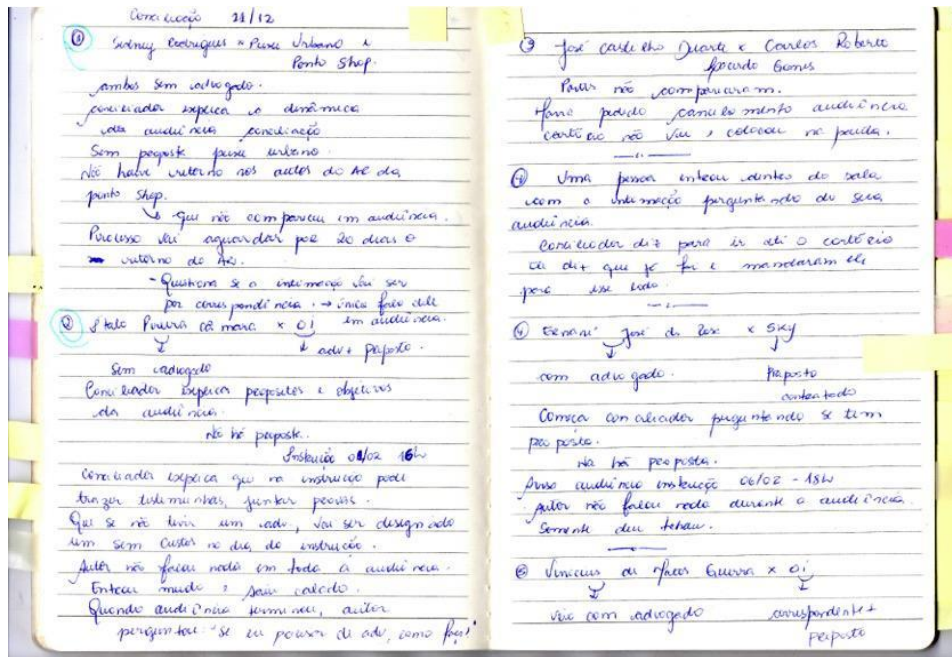 Conciliação 21/12
① Sidney Rodrigues x Peixe Urbano e
Ponto Shop.
ambos sem advogado.
conciliador explica a dinâmica
da audiência conciliação
Sem proposta peixe urbano.
Não houve retorno nos autos do AR da
ponto shop.
↳ que não compareceu em audiência.
Processo vai aguardar por 20 dias o
retorno do AR.
- Questiona se a intimação vai ser
por correspondência. → única fala dele
em audiência.
② Italo Pereira câmara x Oi
adv + preposto.
Sem advogado
Conciliador explica propósitos e objetivos
da audiência.
Não há proposta.
Instrução 01/02 16h
Conciliador explica que na instrução pode
trazer testemunhas, juntar provas.
Que se não tiver um adv, vai ser designado
um sem custos no dia da instrução.
Autor não falou nada em toda a audiência.
Entrou mudo e saiu calado.
Quando audiência terminou, autor
perguntou: se eu precisar de adv, como faço?
③ José Duarte x Carlos Roberto
Gomes
Partes não compareceram.
Houve pedido cancelamento audiência
cartório não viu e colocou na pauta.
④ Uma pessoa entrou dentro da sala
com a intimação perguntando de sua
audiência.
Conciliador diz para ir até o cartório
Ele diz que já foi e mandaram ele
para esse lado.
José da x Sky
com advogado. Preposto
contratado
Começa conciliador perguntando se tem
proposta.
Na há proposta.
Aviso audiência instrução 06/02 - 15h
Autor não falou nada durante a audiência.
Somente deu tchau.
Vinicius de Guerra x Oi
Veio com advogado correspondente +
preposto